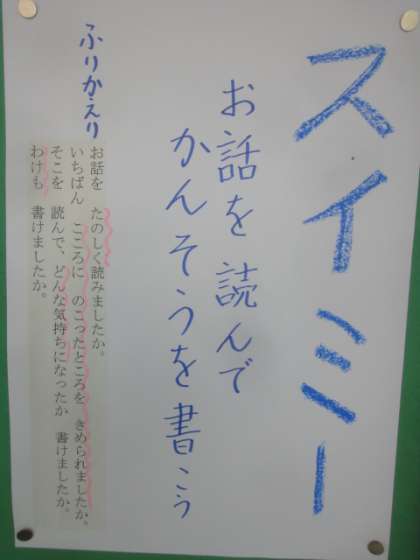 スイミー
お話を読んで
かんそうを書こう
ふりかえり
お話を　たのしく読みましたか。
いちばん　こころに　のこったところを　きめられましたか。
そこを　読んで、どんな気持ちになったか　書けましたか。
わけも　書けましたか。